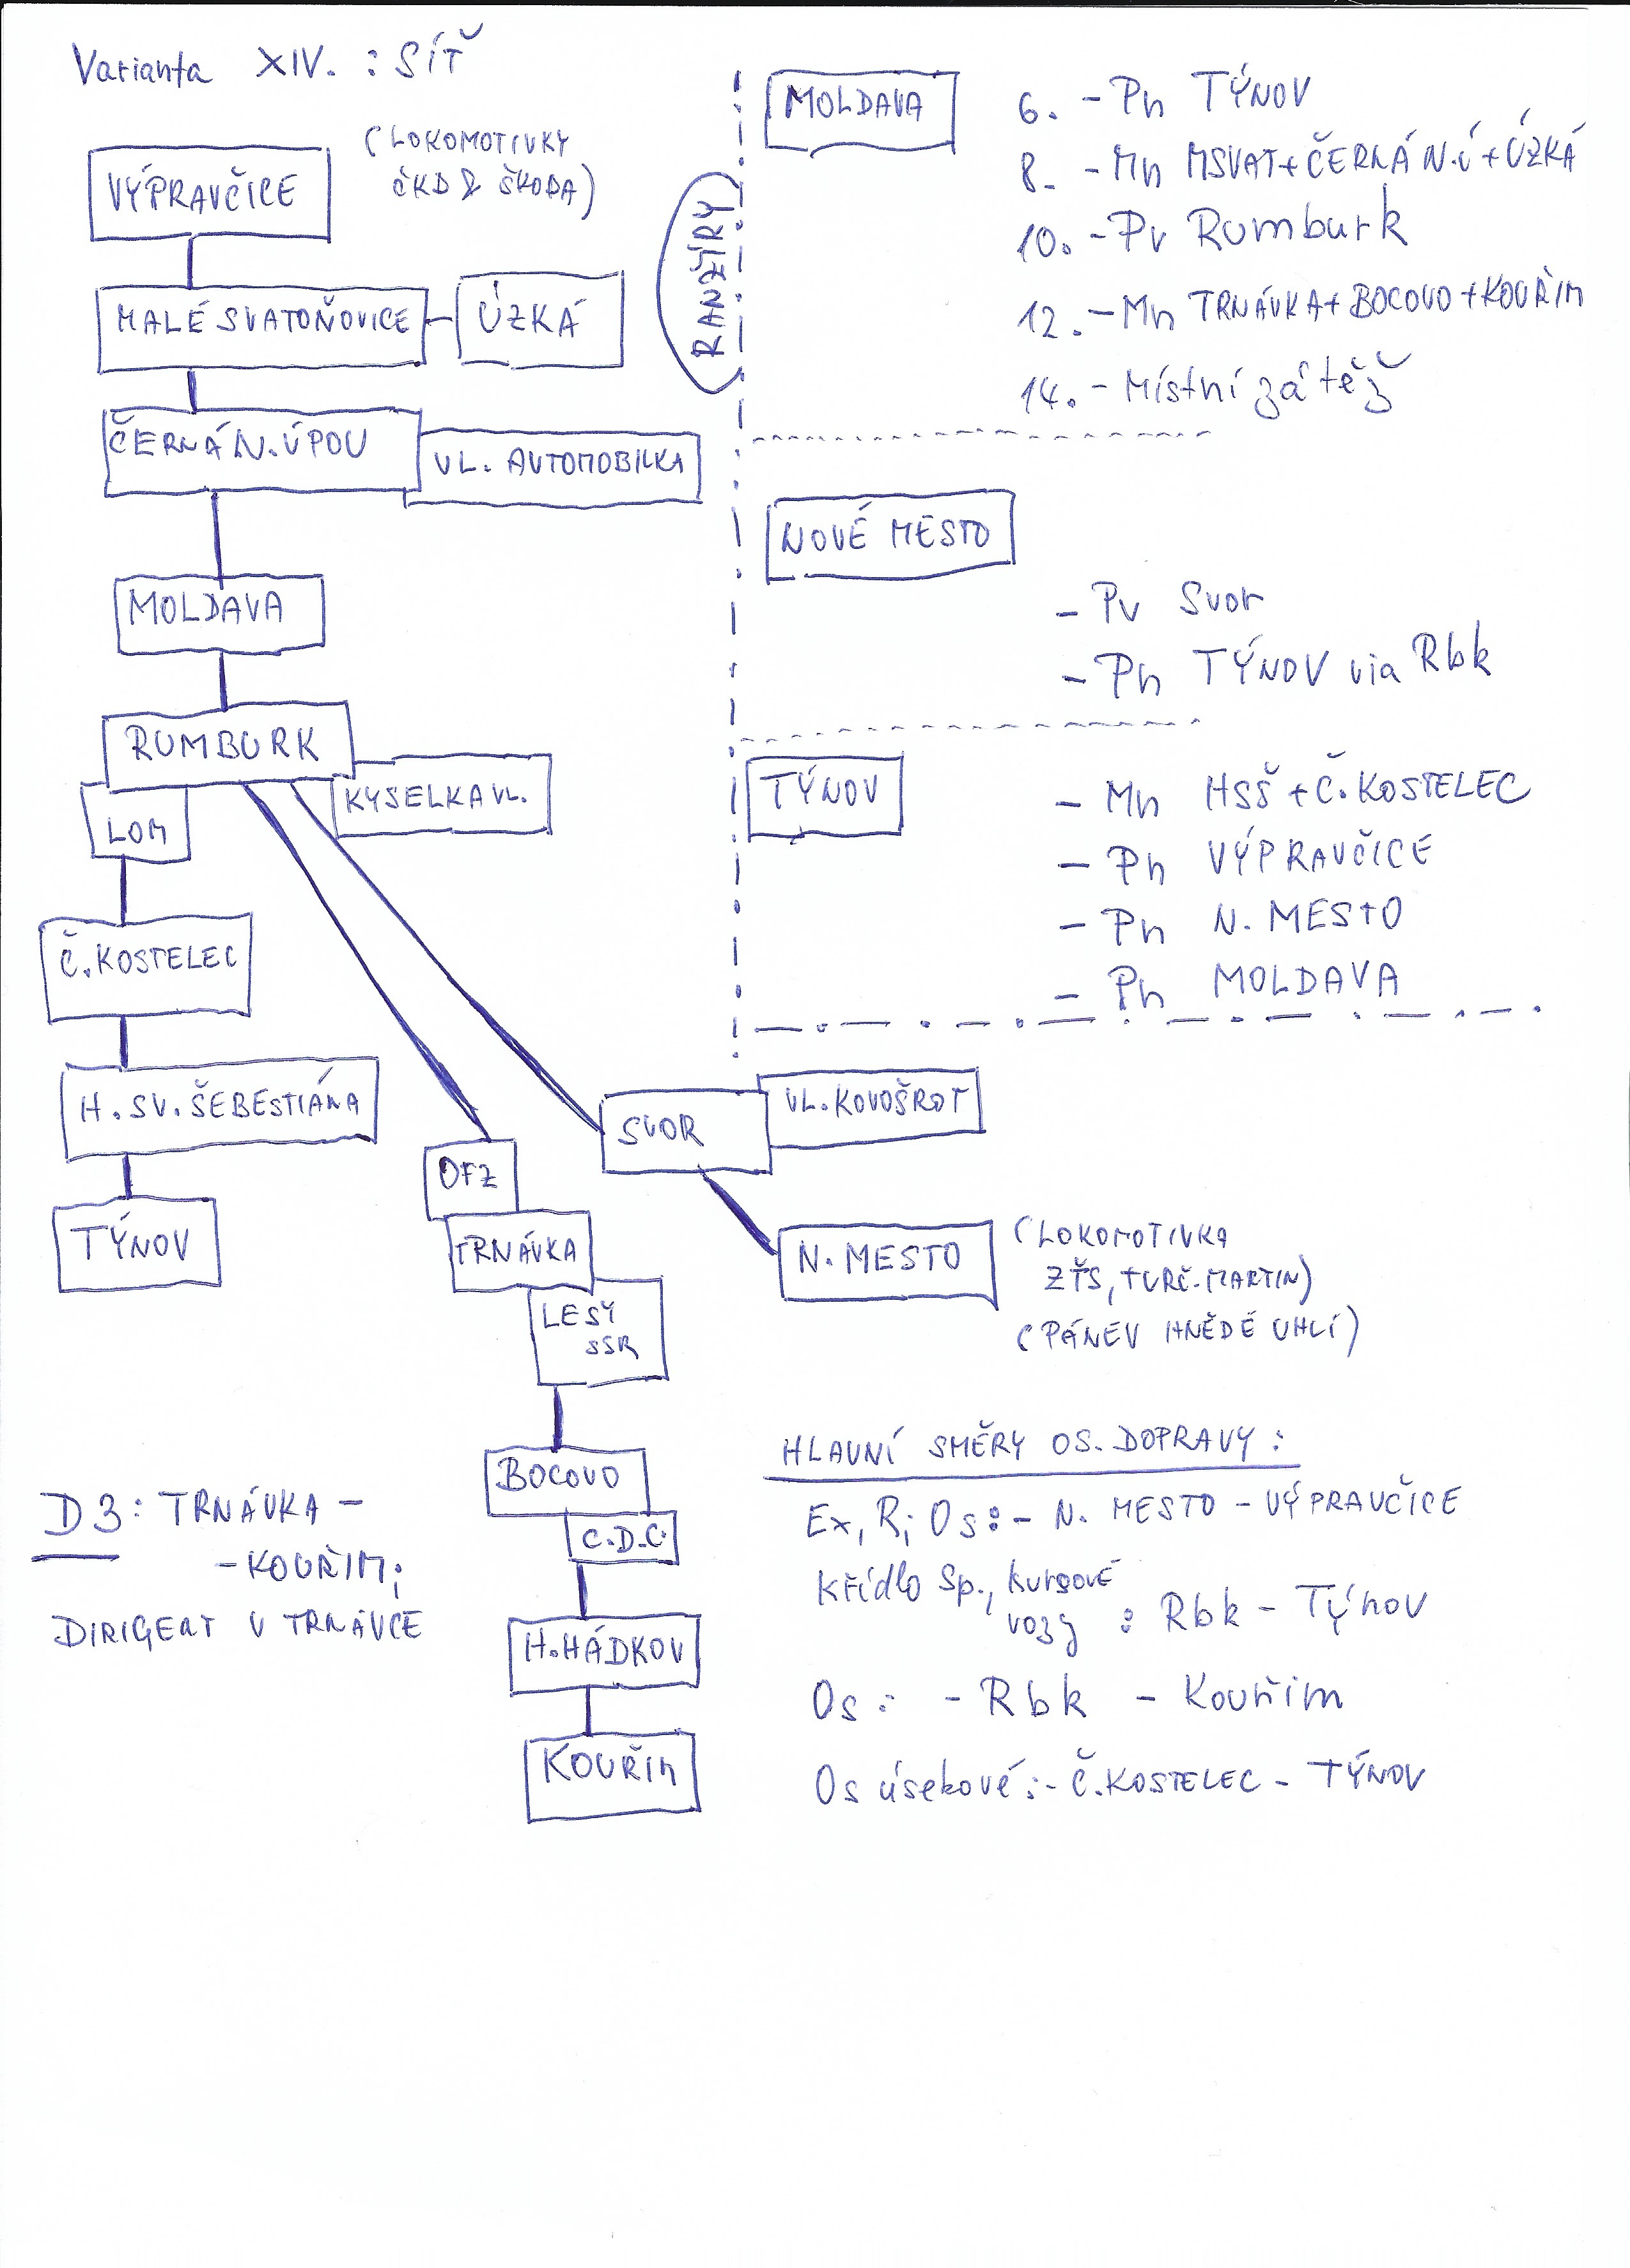 Varianta XIV. : SÍŤ
(LOKOMOTIVKY
ČKD & ŠKODA)
VÝPRAVČICE
MALÉ SVATOŇOVICE
ÚZKÁ
ČERNÁ N. ÚPOU
VL. AUTOMOBILKA
MOLDAVA
RUMBURK
LOM
KYSELKA VL.
Č. KOSTELEC
H. SV. ŠEBESTIÁNA
TÝNOV
OFZ
TRNÁVKA
LESY
SSR
BOCOVO
C.D.C.
H. HÁDKOV
KOUŘIM
SVOR
VL. KOVOŠROT
N. MESTO
(LOKOMOTIVKA
ZŤS, TURČ. MARTIN)
(PÁNEV HNĚDÉ UHLÍ)
D3: TRNÁVKA -
- KOUŘIM;
DIRIGENT V TRNÁVCE
RANŽÍRY
MOLDAVA
6. - Pn TÝNOV
8. - Mn MSVAT + ČERNÁ N.Ú + ÚZKÁ
10. - Pv Rumburk
12. - Mn TRNÁVKA + BOCOVO + KOUŘIM
14. - Místní zátěž
NOVÉ MESTO
- Pv Svor
- Pn TÝNOV via Rbk
TÝNOV
- Mn HSŠ + Č. KOSTELEC
- Pn VÝPRAVČICE
- Pn N. MESTO
- Pn MOLDAVA
HLAVNÍ SMĚRY OS. DOPRAVY :
Ex, R, Os : - N. MESTO - VÝPRAVČICE
Křídlo Sp., kursové
vozy : Rbk - Týnov
Os : - Rbk - Kouřim
Os úsekové : - Č. KOSTELEC - TÝNOV